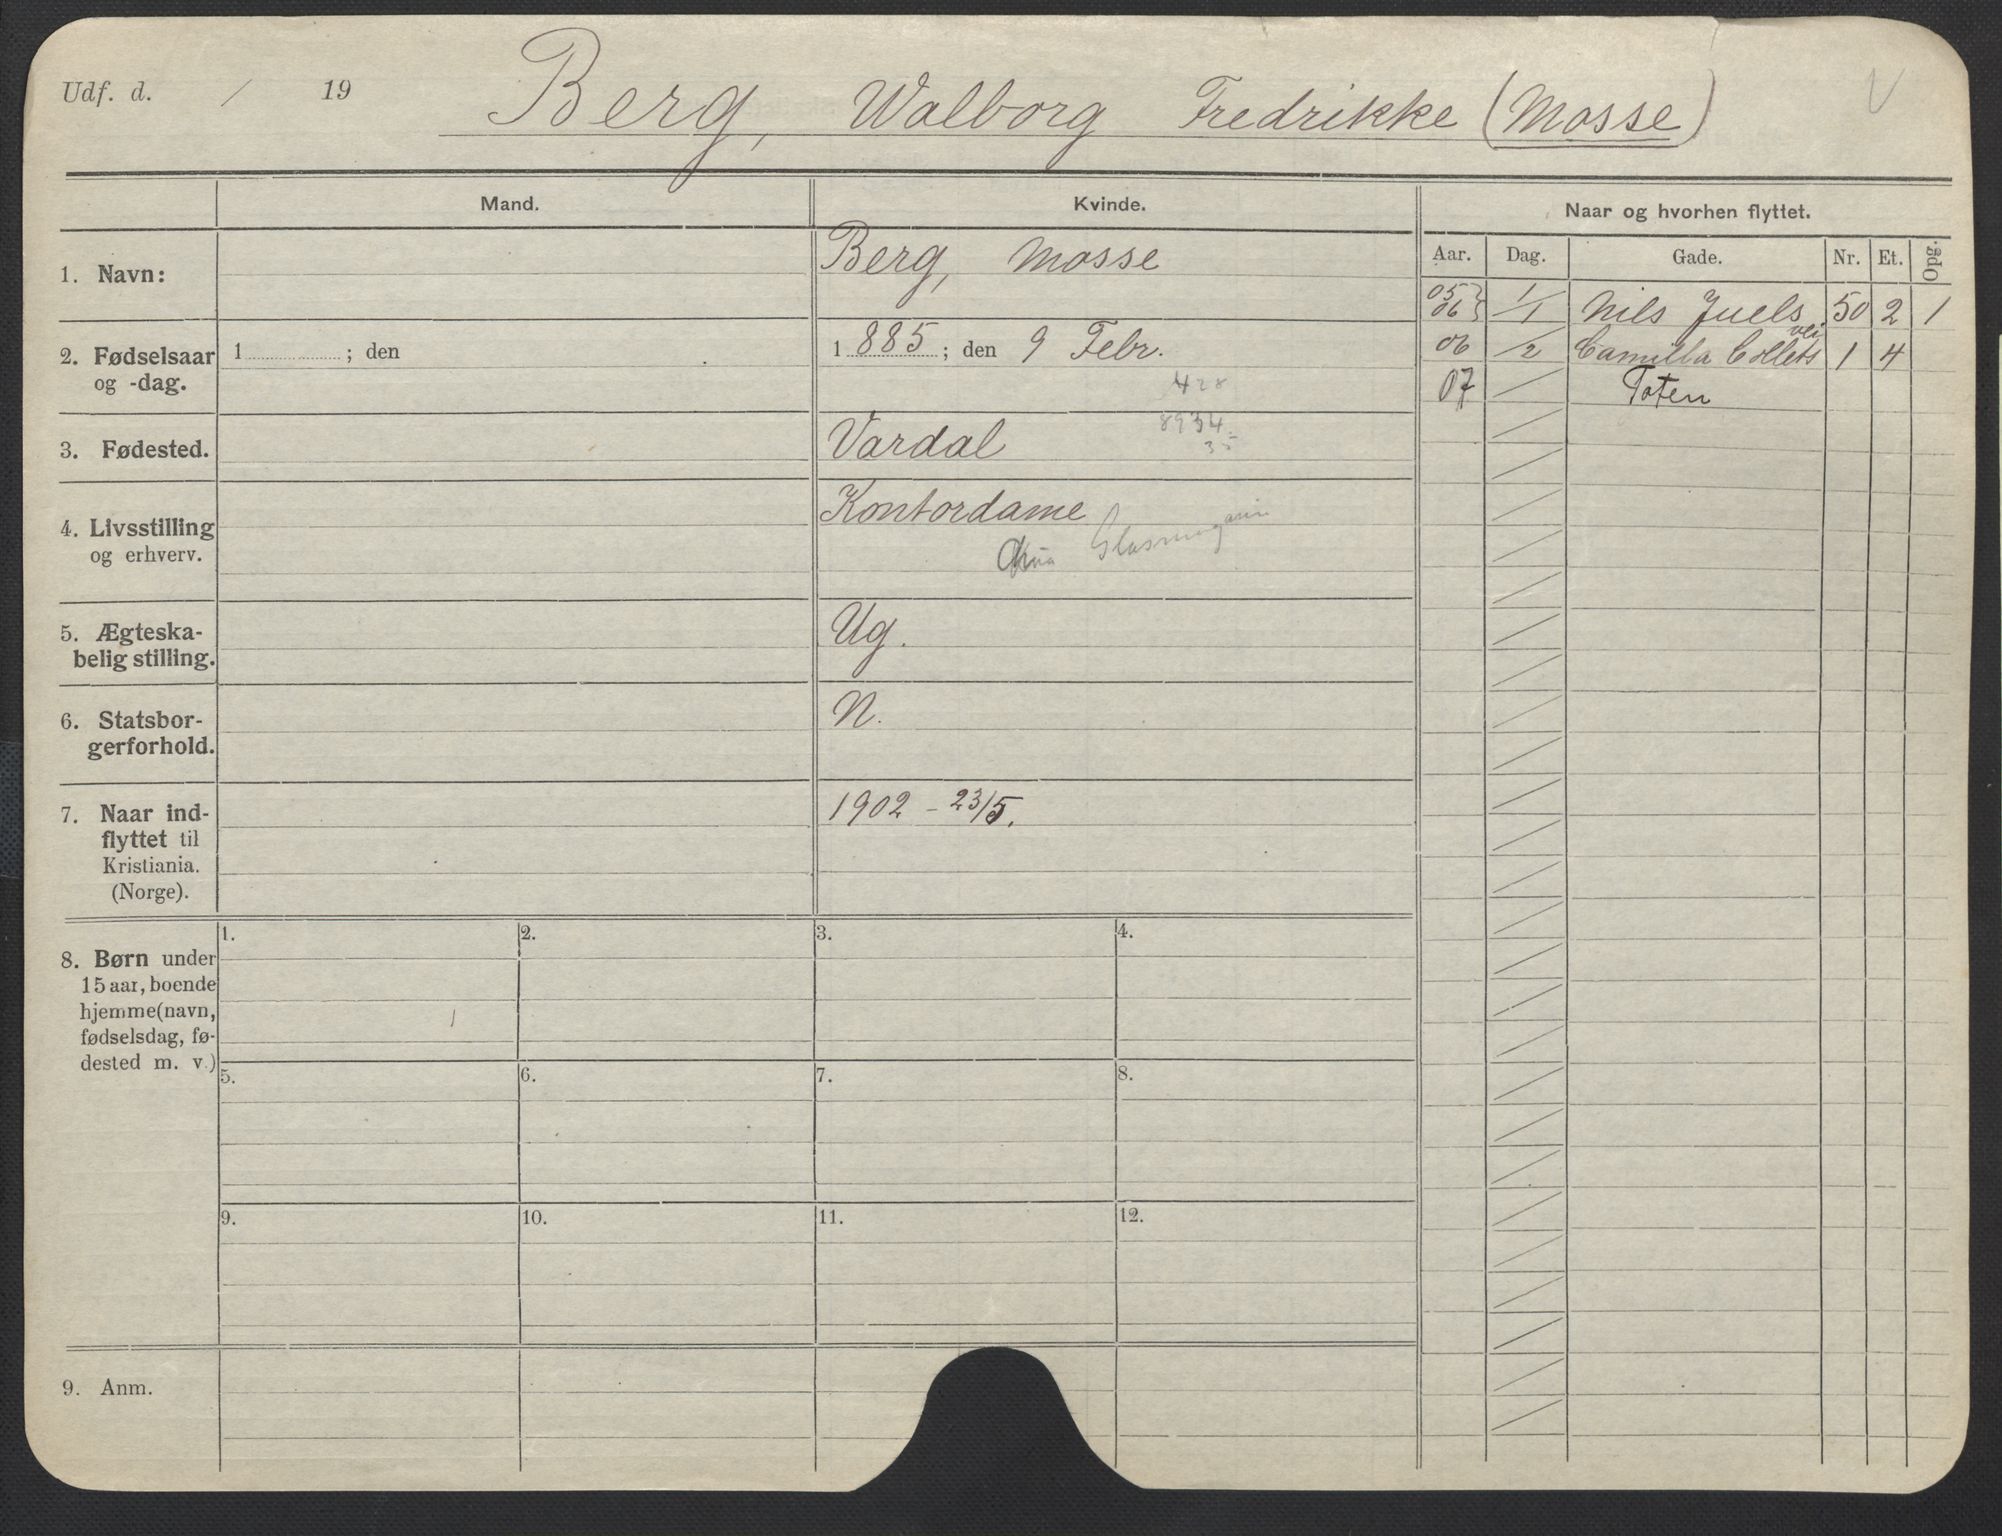 Udf. d. / 19
Berg, Walborg Fredrikke (Mosse)
V
Mand.
Kvinde.
Naar og hvorhen flyttet.
Aar. Dag. Gade. Nr. Et. Opg.
1. Navn:
Berg, Mosse
05 06 } 1/1 Nils Juels 50 2 1
2. Fødselsaar
og -dag.
1 ; den
1 885 ; den 9 Febr.
428
06 1/2 Camilla Collets vei 1 4
07 / Toten
3. Fødested.
Vardal
8934
35
4. Livsstilling
og erhverv.
Kontordame
Glasmagasin
5. Ægteska-
belig stilling.
Ug.
6. Statsbor-
gerforhold.
N.
7. Naar ind-
flyttet til
Kristiania.
(Norge).
1902 - 23/5.
8. Børn under
15 aar, boende
hjemme(navn,
fødselsdag, fø-
dested m. v.)
1. 2. 3. 4.
5. 6. 7. 8.
9. 10. 11. 12.
9. Anm.